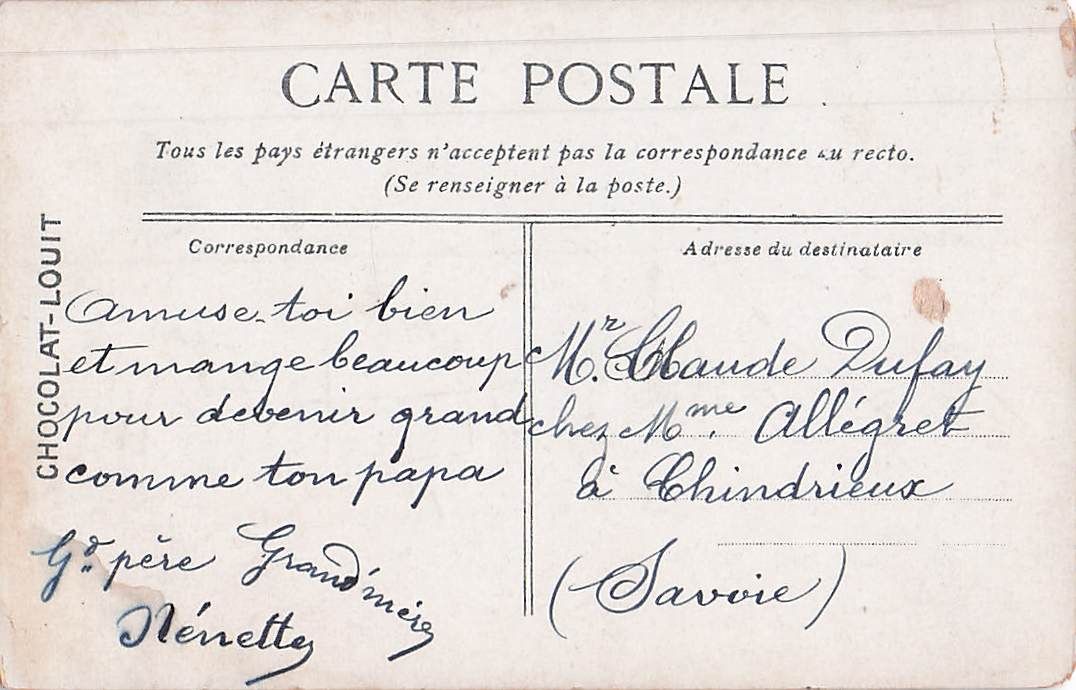 CARTE POSTALE
Tous les pays étrangers n'acceptent pas la correspondance au recto.
(Se renseigner à la poste.)
CHOCOLAT-LOUIT
Correspondance
Amuse-toi bien
et mange beaucoup
pour devenir grand
comme ton papa
Gd. père Grand'mère
Nénette
Adresse du destinataire
Mr. Claude Dufay
chez Mme. Allégret
à Chindrieux
(Savoie)